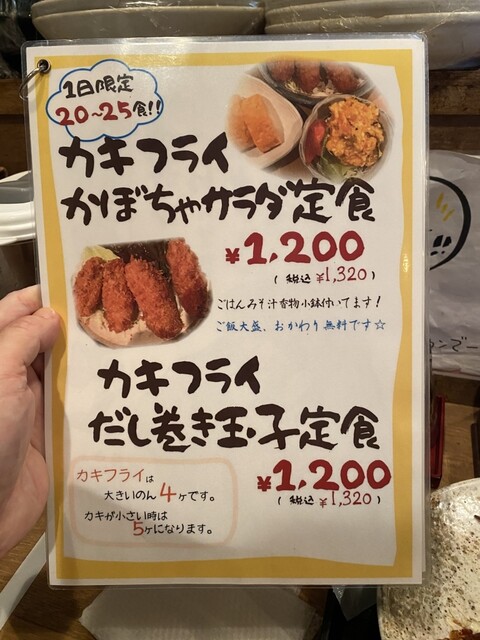 1日限定
20～25食!!
カキフライ
かぼちゃサラダ定食
¥1,200
(税込 ¥1,320)
ごはんみそ汁香物小鉢付いてます!
ご飯大盛、おかわり無料です☆
カキフライ
だし巻き玉子定食
¥1,200
(税込 ¥1,320)
カキフライは
大きいのん4ヶです。
カキが小さい時は
5ヶになります。